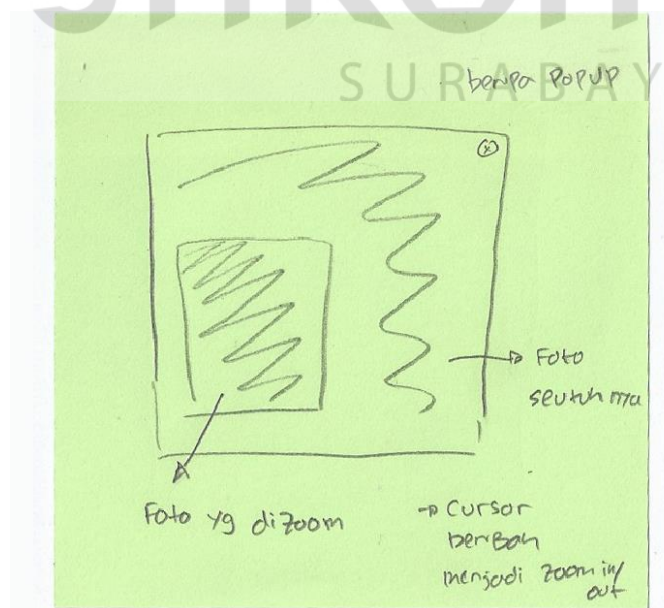 SURABAY
berupa POPUP
(x)
→ Foto
seutuhnya
Foto yg dizoom
→ Cursor
berubah
menjadi zoom in/
out